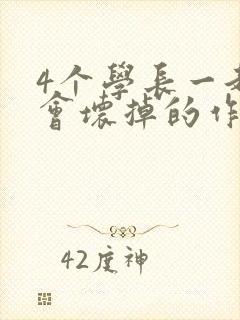 4个學長一
會壞掉的作
42度神